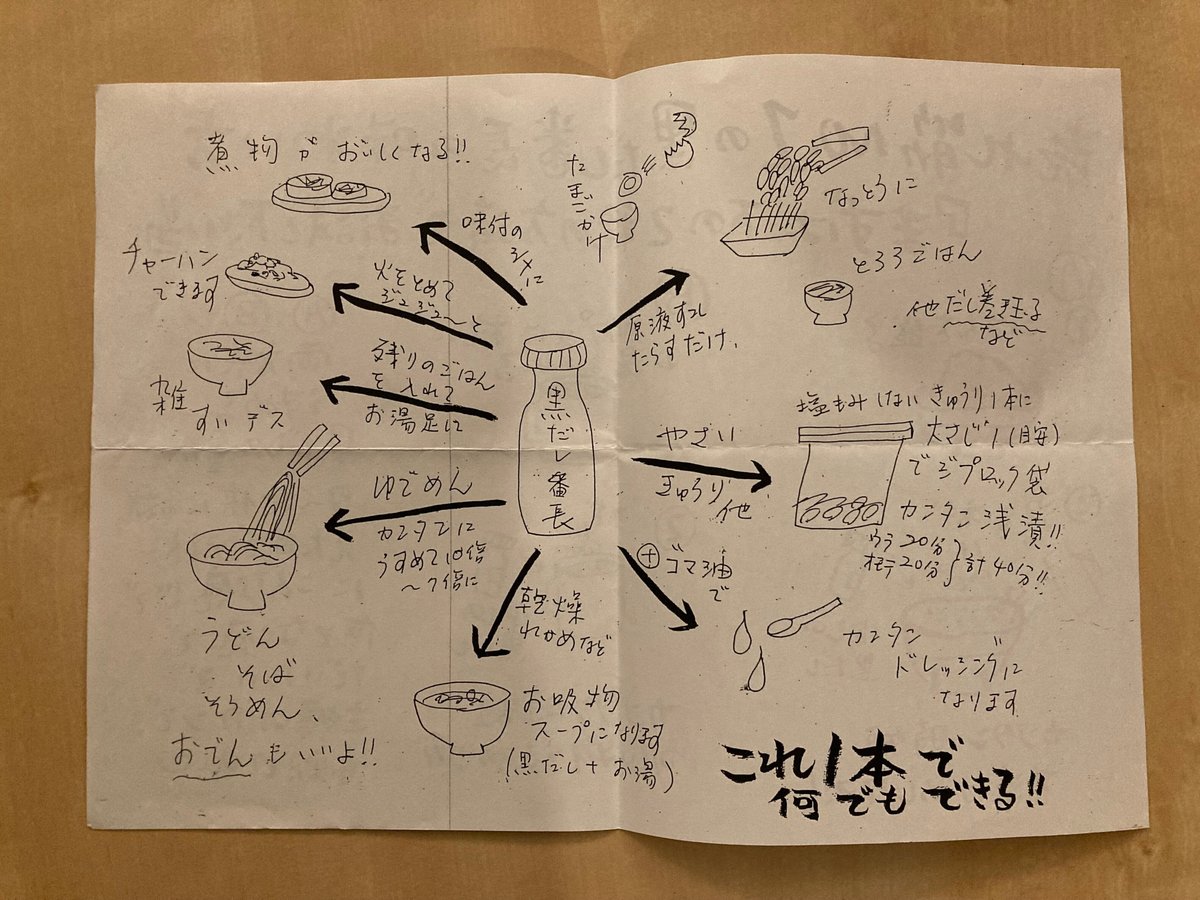 煮物がおいしくなる!!
味付の
〆に
チャーハン
できます
火をとめて
ジュジュ〜と
雑すいデス
残りのごはん
を入れて
お湯足に
ゆでめん
カンタンに
うすめて10倍
〜7倍に
うどん
そば
そうめん、
おでんもいいよ!!
黒だし番長
乾燥
わかめなど
お吸物
スープになります
(黒だし+お湯)
たまごかけ
なっとうに
とろろごはん
他だし巻き玉子
など
原液すこし
たらすだけ、
やさい
きゅうり他
塩もみしないきゅうり1本に
大さじ1(目安)
でジプロック袋
カンタン浅漬!!
ウラ20分
オモテ20分
計40分!!
+ゴマ油
で
カンタン
ドレッシングに
なります
これ1本で
何でもできる!!